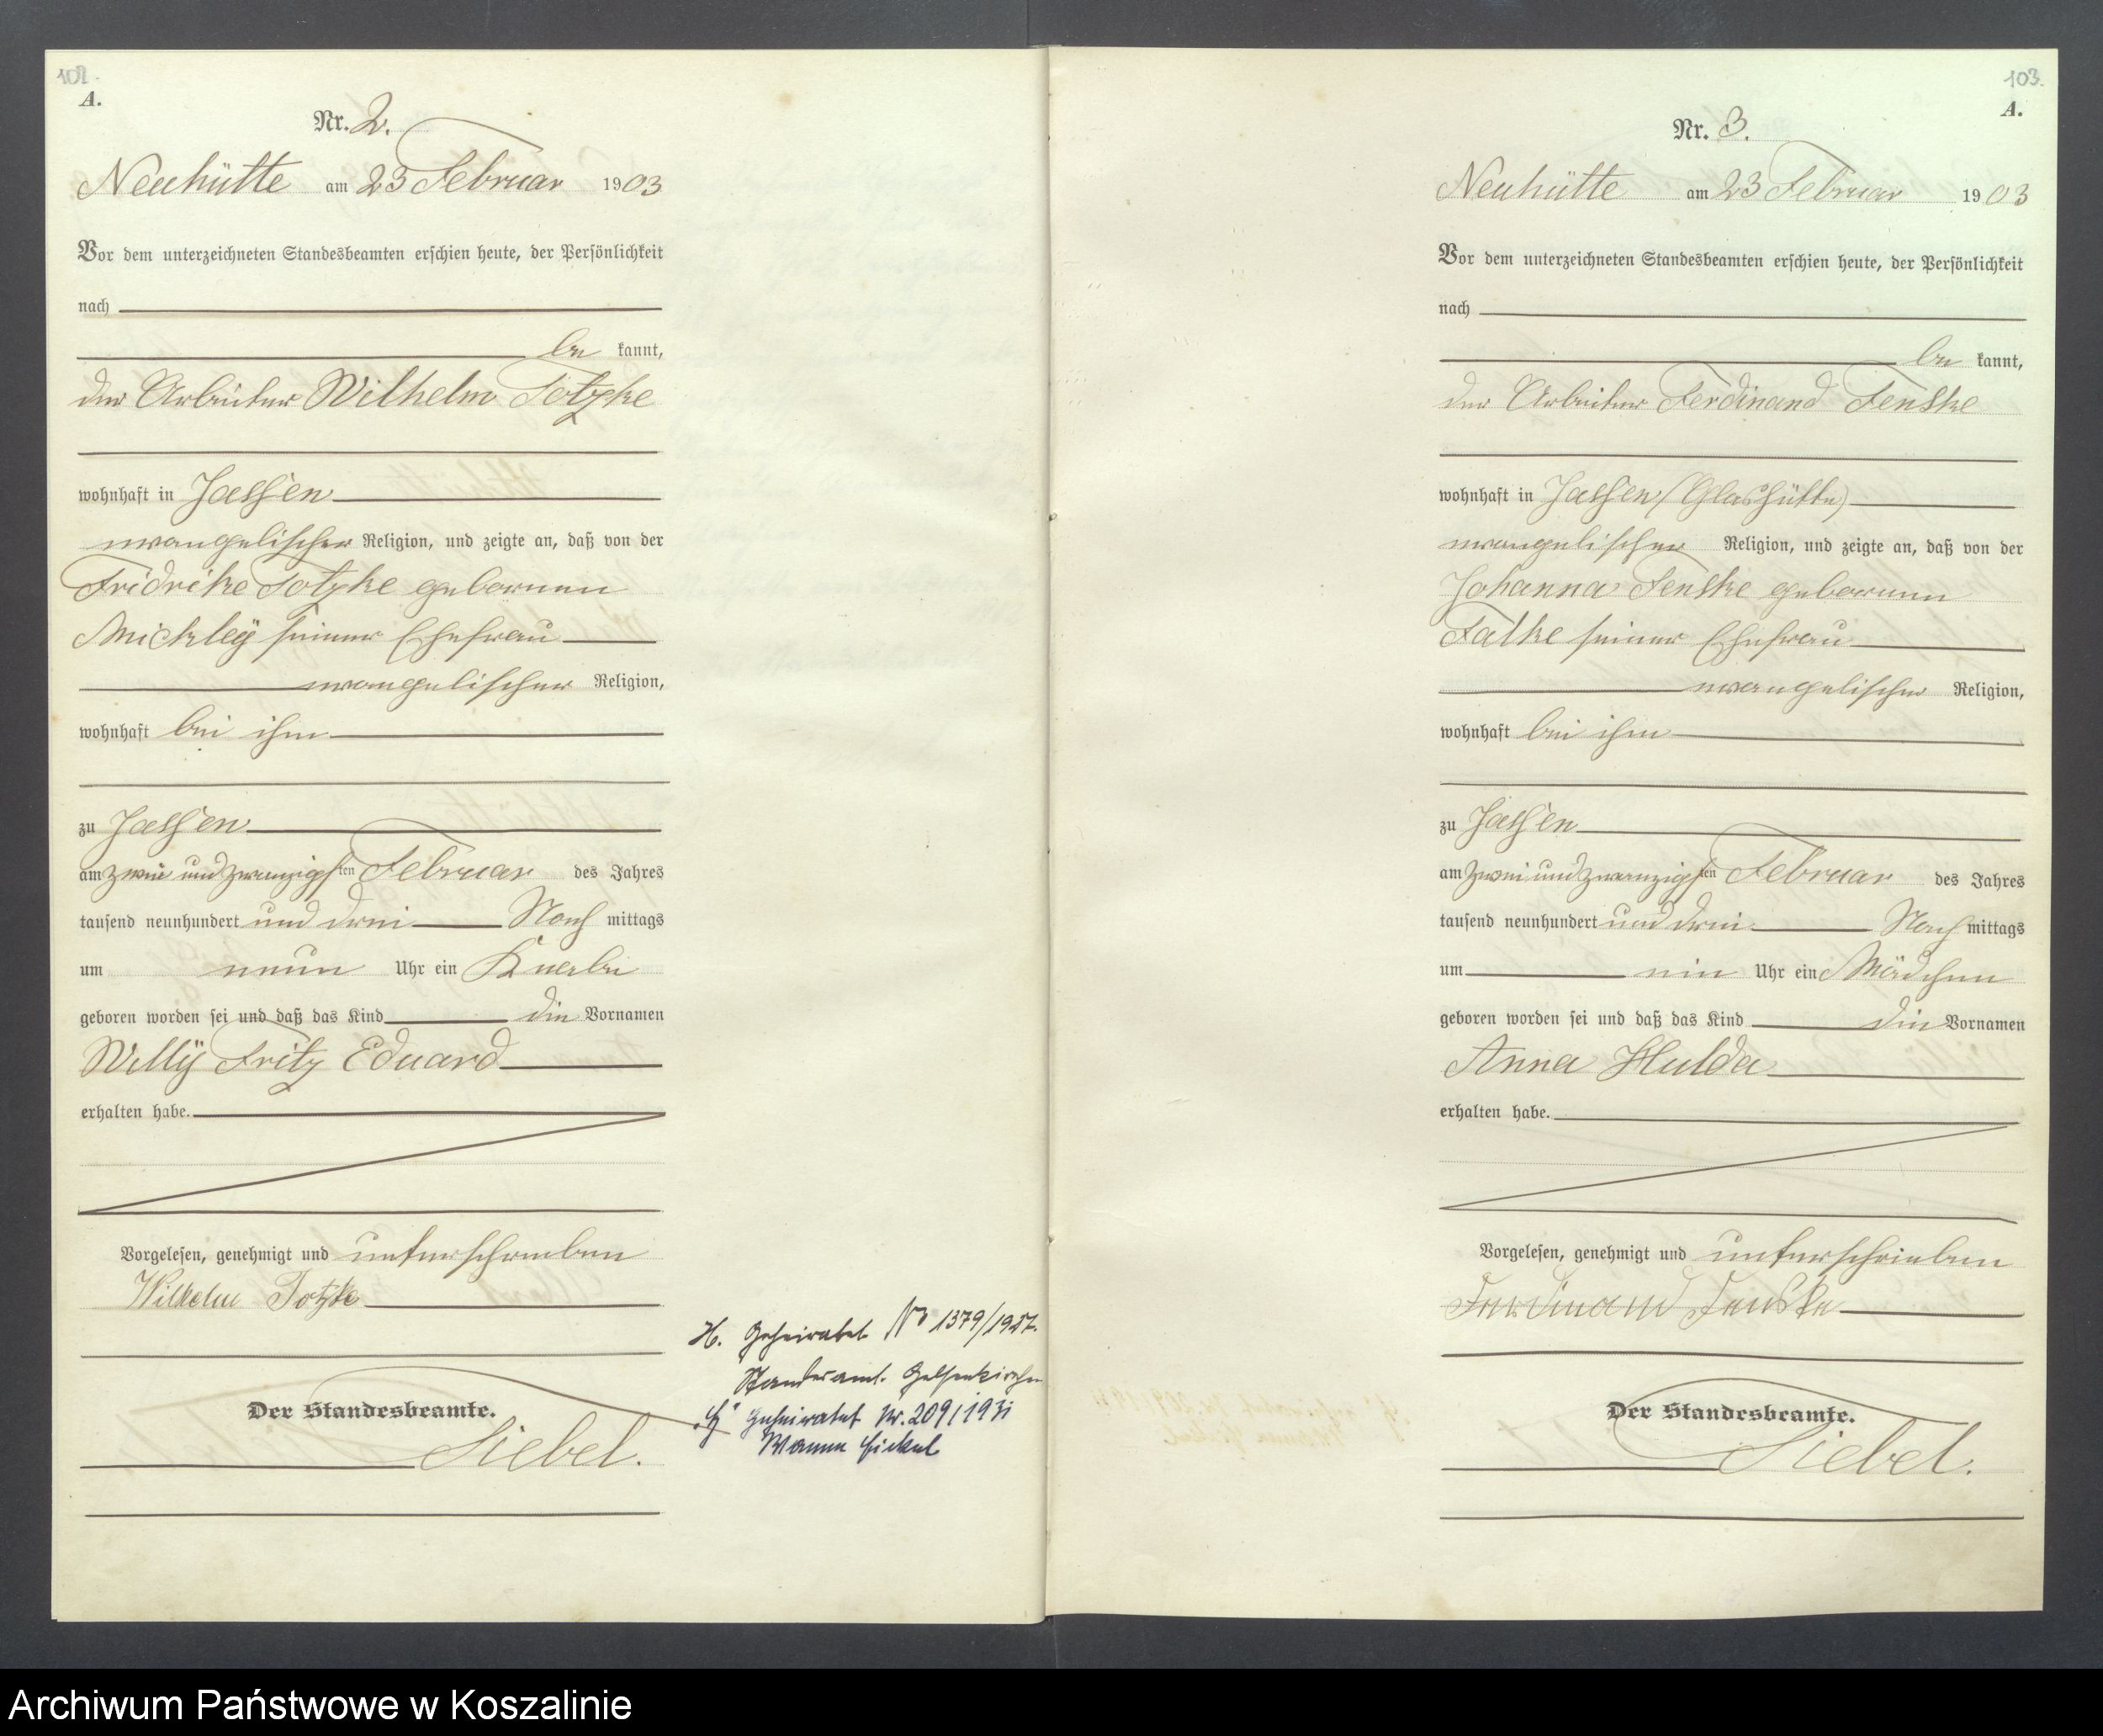 102.
A.
Nr. 2.
Neuhütte am 23 Februar 1903
Vor dem unterzeichneten Standesbeamten erschien heute, der Persönlichkeit
nach
be kannt,
der Arbeiter Wilhelm Totzke
wohnhaft in Jassen
evangelischer Religion, und zeigte an, daß von der
Fridrike Totzke geborenen
Mickley seiner Ehefrau
evangelischer Religion,
wohnhaft bei ihm
zu Jassen
am zwei und zwanzigsten Februar des Jahres
tausend neunhundert und drei Nach mittags
um neun Uhr ein Knabe
geboren worden sei und daß das Kind die Vornamen
Willy Fritz Eduard
erhalten habe.
Vorgelesen, genehmigt und unterschrieben
Wilhelm Totzke
Der Standesbeamte.
Siebel.
H. Geheiratet No 1379/1927.
Standesamt Gelsenkirchen
"H" Geheiratet Nr. 209/1931
Wanne Eickel
103.
A.
Nr. 3.
Neuhütte am 23 Februar 1903
Vor dem unterzeichneten Standesbeamten erschien heute, der Persönlichkeit
nach
be kannt,
der Arbeiter Ferdinand Fenske
wohnhaft in Jassen (Glashütte)
evangelischer Religion, und zeigte an, daß von der
Johanna Fenske geborenen
Fatke seiner Ehefrau
evangelischer Religion,
wohnhaft bei ihm
zu Jassen
am zwei und zwanzigsten Februar des Jahres
tausend neunhundert und drei Nach mittags
um ein Uhr ein Mädchen
geboren worden sei und daß das Kind die Vornamen
Anna Hulda
erhalten habe.
Vorgelesen, genehmigt und unterschrieben
Ferdinand Fenske
Der Standesbeamte.
Siebel.
Archiwum Państwowe w Koszalinie